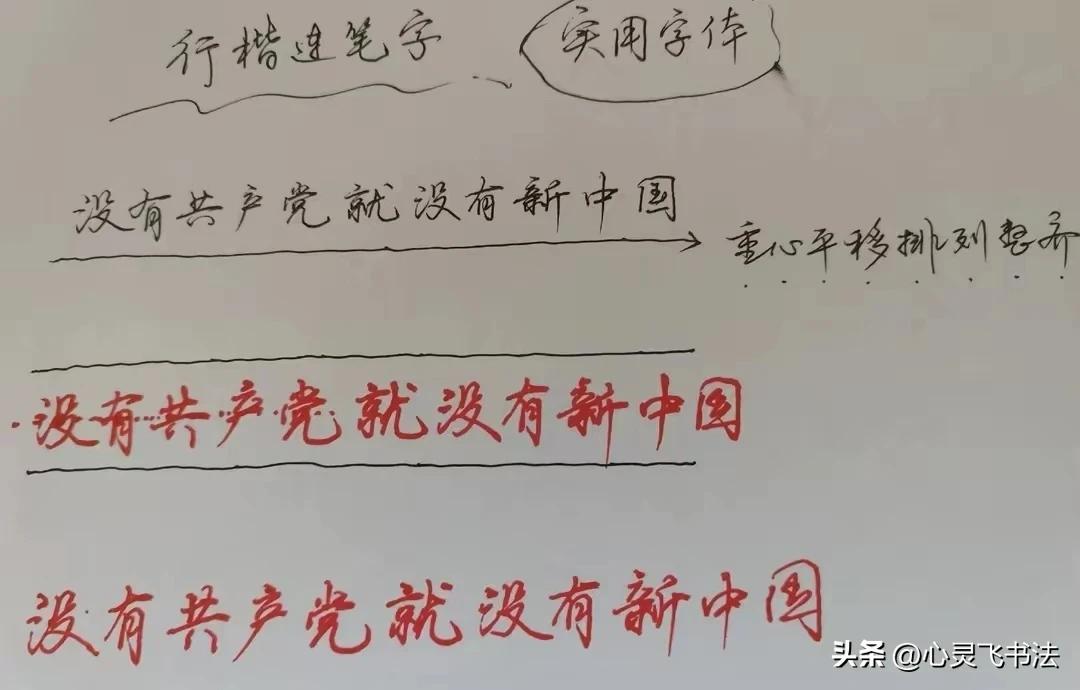 行楷连笔字 实用字体
没有共产党就没有新中国
重心平移排列整齐
没有共产党就没有新中国
没有共产党就没有新中国
头条 @心灵飞书法